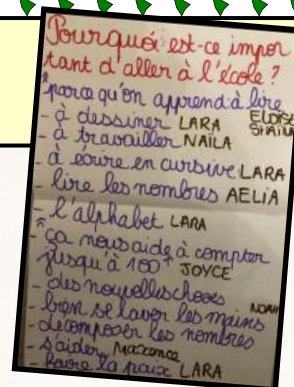 Pourquoi est-ce impor
tant d'aller à l'école ?
* parce qu'on apprend à lire ELOÏSE
- à dessiner LARA SHAÏNA
- à travailler NAÏLA
- à écrire en cursive LARA
- lire les nombres AELIA
- l'alphabet LARA
- ça nous aide à compter
jusqu'à 100 JOYCE
- des nouvelles choses NOAH
- bien se laver les mains
- décomposer les nombres
- s'aider Maxence
- faire la paix LARA